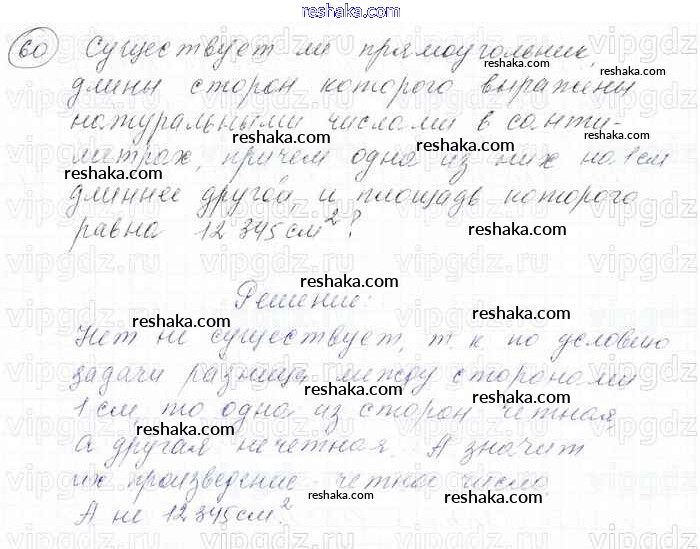 reshaka.com
60 Существует ли прямоугольник,
reshaka.com
длины сторон которого выражены
reshaka.com
натуральными числами в санти-
reshaka.com
reshaka.com
метрах, причем одна из них на 1 см
reshaka.com
reshaka.com
длиннее другой, и площадь которого
reshaka.com
равна 12 345 см²?
reshaka.com
reshaka.com
Решение:
reshaka.com
reshaka.com
Нет не существует, т к по условию
reshaka.com
задачи разница между сторонами
reshaka.com
1 см то одна из сторон четная,
reshaka.com
а другая нечетная. А значит
reshaka.com
reshaka.com
их произведение четное число
reshaka.com
А не 12 345 см².
reshaka.com